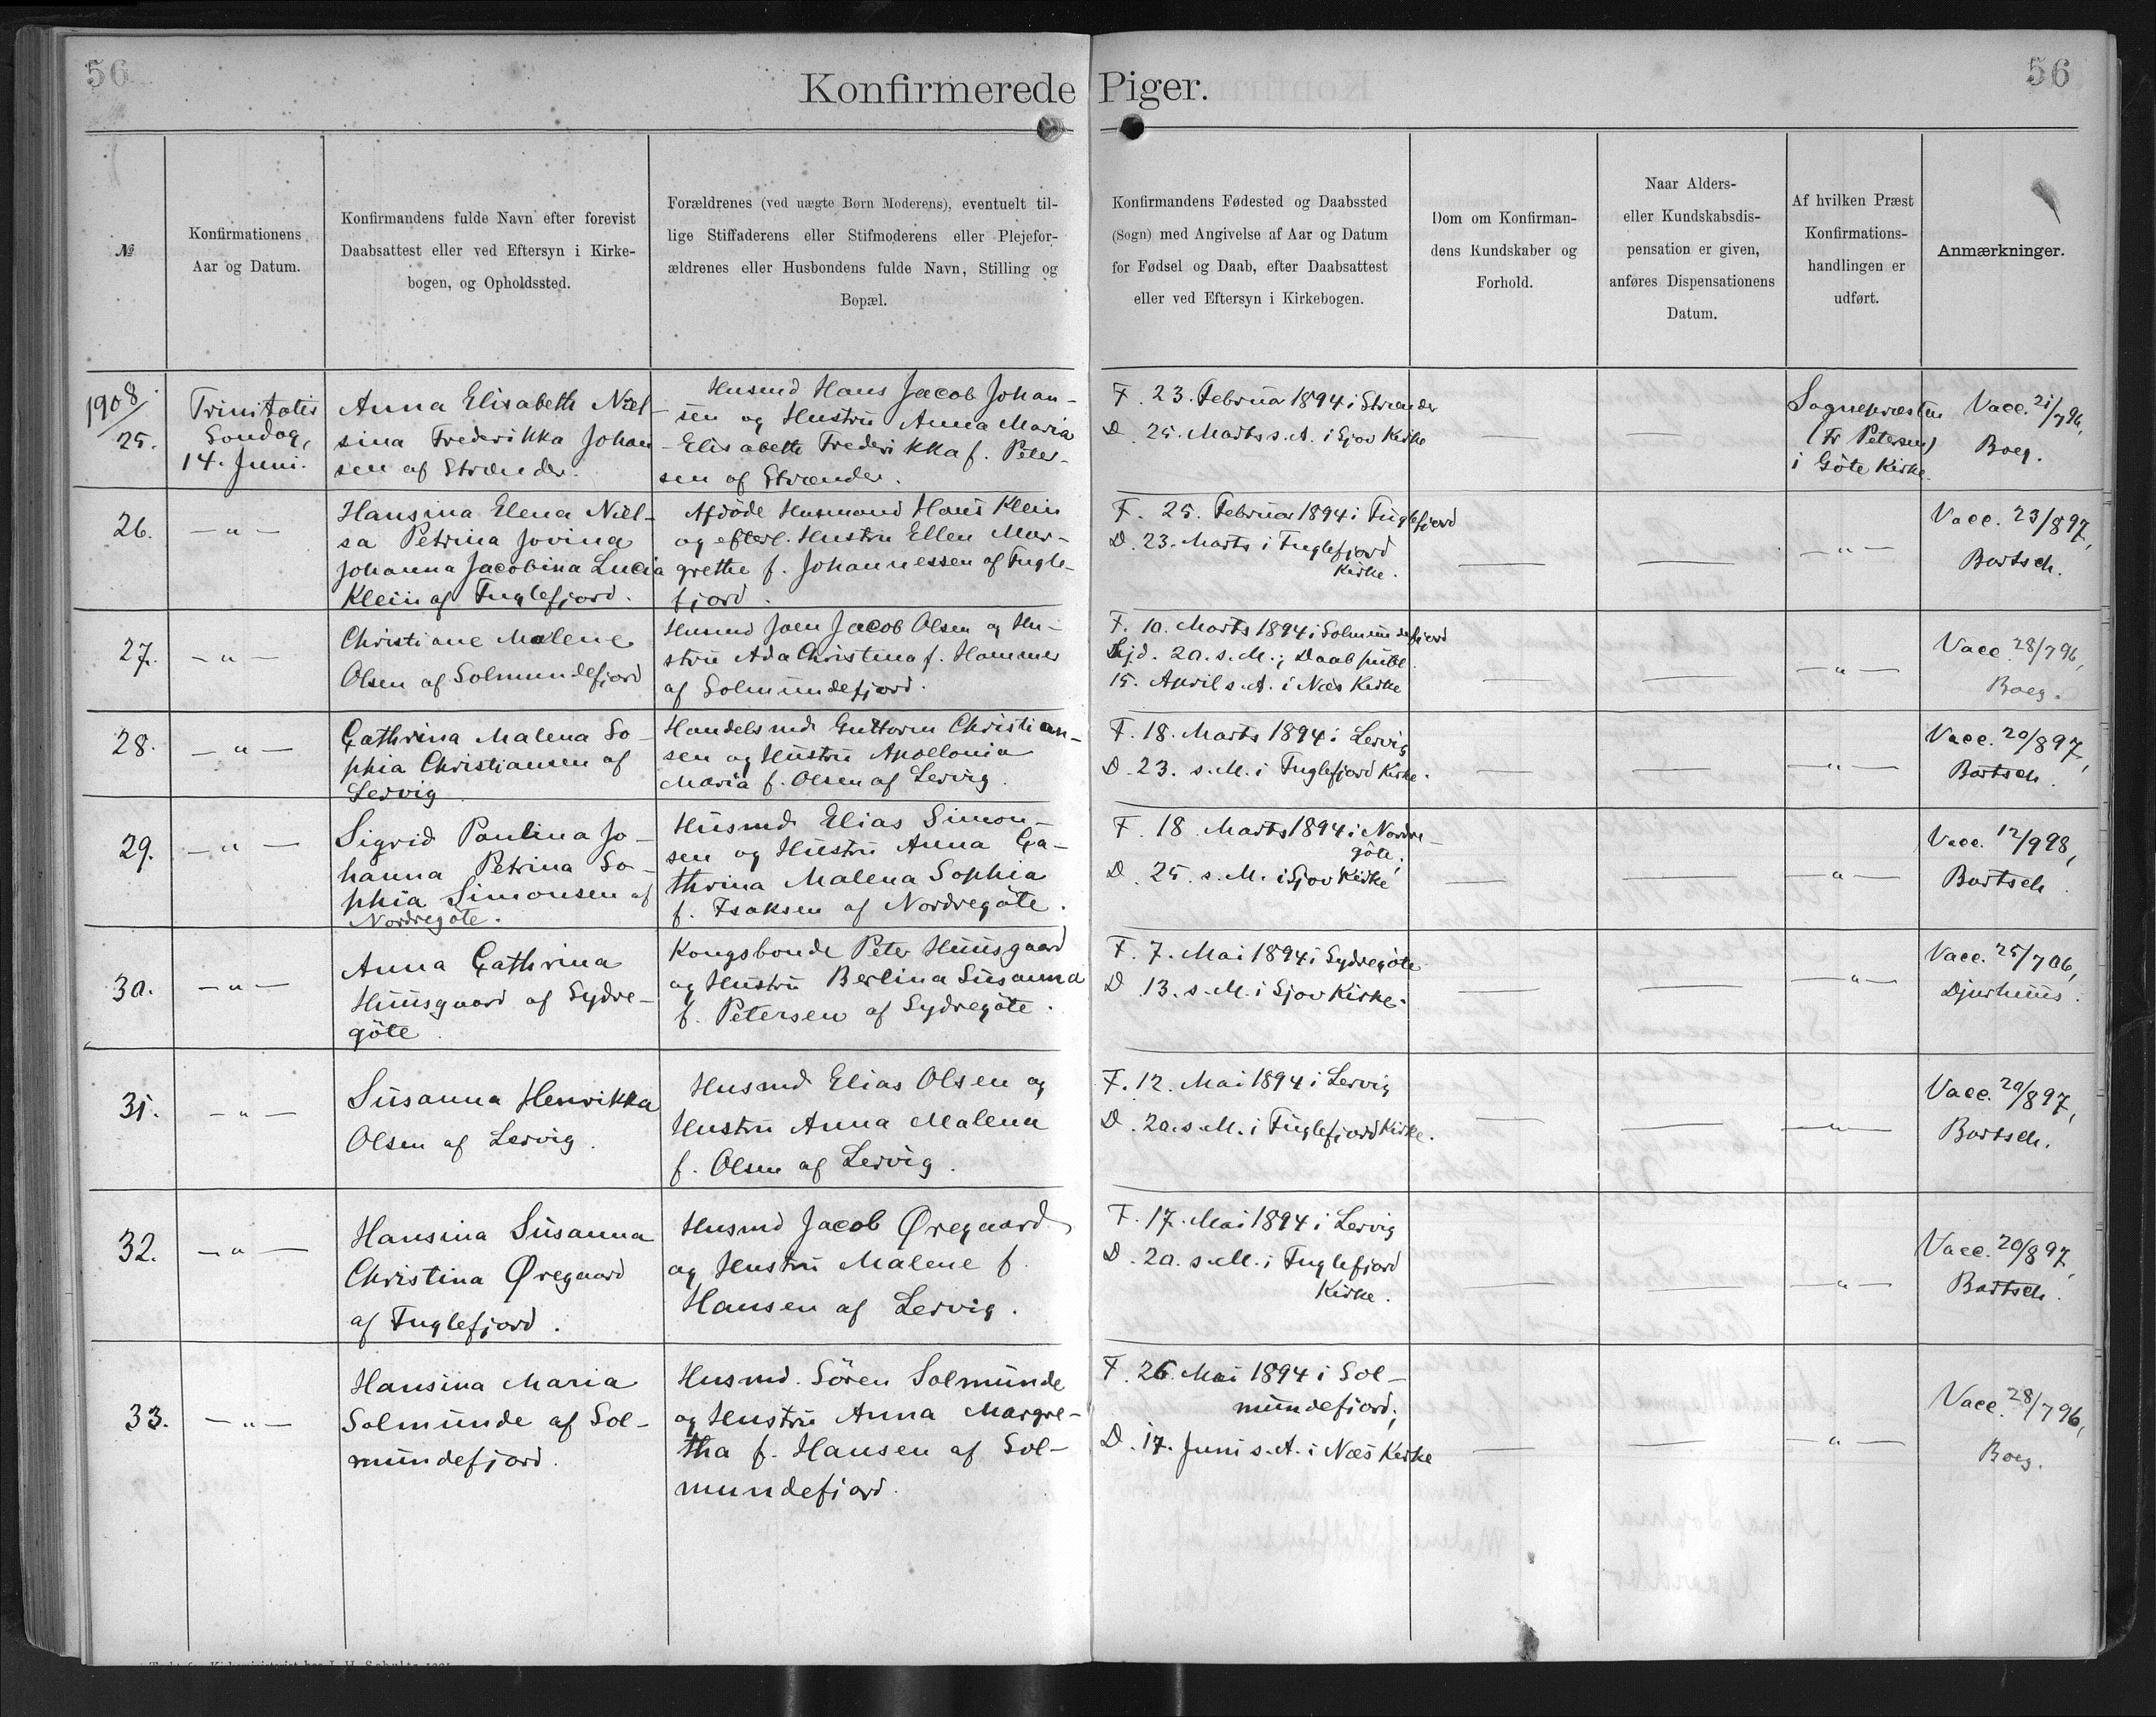 56
Konfirmerede Piger.
56
№
Konfirmationens
Aar og Datum.
Konfirmandens fulde Navn efter forevist
Daabsattest eller ved Eftersyn i Kirke-
bogen, og Opholdssted.
Forældrenes (ved uægte Børn Moderens), eventuelt til-
lige Stiffaderens eller Stifmoderens eller Plejefor-
ældrenes eller Husbondens fulde Navn, Stilling og
Bopæl.
Konfirmandens Fødested og Daabssted
(Sogn) med Angivelse af Aar og Datum
for Fødsel og Daab, efter Daabsattest
eller ved Eftersyn i Kirkebogen.
Dom om Konfirman-
dens Kundskaber og
Forhold.
Naar Alders-
eller Kundskabsdis-
pensation er given,
anføres Dispensationens
Datum.
Af hvilken Præst
Konfirmations-
handlingen er
udført.
Anmærkninger.
1908/
25.
Trinitatis
Sondag,
14. Juni.
Anna Elisabeth Niel-
sina Frederikka Johan
sen af Strænder.
Husmd Hans Jacob Johan-
sen og Hustrü Anna Maria
-Elisabeth Frederikka f. Peter-
sen af Strænder.
F. 23. Februar 1894 i Strænder
D. 25. Marts s. A. i Sjov Kirke
—
—
Sognepræsten
(Fr Petersen)
i Göte Kirke.
Vacc. 21/7 96,
Boeg.
26.
— " —
Hansina Elena Niel-
sa Petrina Jovina
Johanna Jacobina Lucia
Klein af Fuglefjord.
Afdöde Husmand Hans Klein
og efterl. Hustru Ellen Mar-
grethe f. Johannessen af Fugle-
fjord.
F. 25. Februar 1894 i Fuglefjord
D. 23. Marts i Fuglefjord
Kirke.
—
—
— " —
Vacc. 23/8 97,
Bartsch.
27.
— " —
Christiane Malene
Olsen af Solmundefjord
Husmd Joen Jacob Olsen og Hu-
strü Ada Christina f. Hammer
af Solmündefjord.
F. 10. Marts 1894 i Solmundefjord
Hjd. 20. s. M.; Daab publ.
15. April s. A. i Næs Kirke
—
—
— " —
Vacc 28/7 96,
Boeg.
28.
— " —
Cathrina Malena So-
phia Christiansen af
Lervig
Handelsmd Guttorm Christian-
sen og Hüstrü Apollonia
Maria f. Olsen af Lervig.
F. 18. Marts 1894 i Lervig
D. 23. s. M. i Fuglefjord Kirke.
—
—
— " —
Vacc. 20/8 97,
Bartsch.
29.
— " —
Sigrid Paulina Jo-
hanna Petrina So-
phia Simonsen af
Nordregöte.
Hüsmd Elias Simon-
sen og Hüstrü Anna Ca-
thrina Malena Sophia
f. Isaksen af Nordregöte.
F. 18. Marts 1894 i Nordre-
göte;
D. 25. s. M. i Sjov Kirke
—
—
— " —
Vacc. 12/9 98,
Bartsch.
30.
— " —
Anna Cathrina
Hüüsgaard af Sydre-
göte.
Kongsbonde Peter Hüüsgaard
og Hüstrü Berlina Süsanna
f. Petersen af Sydregöte.
F. 7. Mai 1894 i Sydregöte
D. 13. s. M. i Sjov Kirke.
—
—
— " —
Vacc. 25/7 06,
Djurhüüs.
31.
— " —
Süsanna Henrikka
Olsen af Lervig.
Husmd Elias Olsen og
Hüstrü Anna Malena
f. Olsen af Lervig.
F. 12. Mai 1894 i Lervig
D. 20. s. M. i Füglefjord Kirke.
—
—
— " —
Vacc. 20/8 97,
Bartsch.
32.
— " —
Hansina Süsanna
Christina Øregaard
af Fuglefjord.
Husmd Jacob Øregaard
og Hustrü Malene f.
Hansen af Lervig.
F. 17. Mai 1894 i Lervig
D. 20. s. M. i Fuglefjord
Kirke.
—
—
— " —
Vacc. 20/8 97,
Bartsch.
33.
— " —
Hansina Maria
Solmünde af Sol-
mündefjord.
Husmd. Sören Solmünde
og Hustrü Anna Margre-
tha f. Hansen af Sol-
mundefjord.
F. 26. Mai 1894 i Sol-
mündefjord;
D. 17. Juni s. A. i Næs Kirke
—
—
— " —
Vacc. 28/7 96,
Boeg.